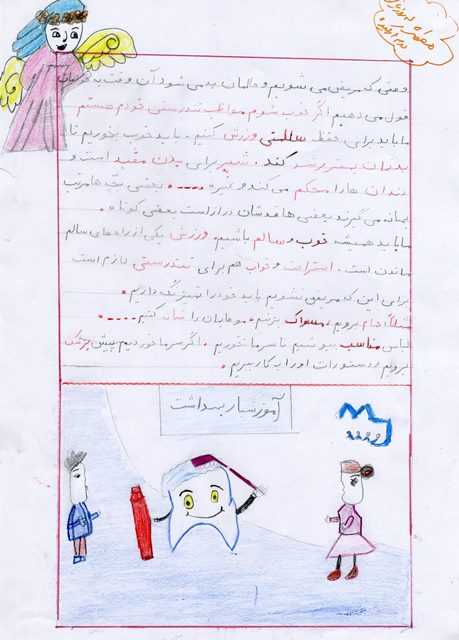 وقتی که مریض می شویم و حالمان بد می شود آن وقت به خودمان
قول می دهیم اگر خوب شوم مواظب تندرستی خودم هستم
ما باید برای حفظ سلامتی ورزش کنیم . باید خوب بخوریم تا
بدنمان بهتر رشد کند . شیر برای بدن مفید است و
دندان ها را محکم می کند و غیره ..... . بعضی بچّه ها مرتب
بهانه می گیرند بعضی ها قدشان دراز است بعضی کوتاه .
ما باید همیشه خوب و سالم باشیم . ورزش یکی از راه های سالم
ماندن است . استراحت و خواب هم برای تندرستی لازم است
برای این که مریض نشویم باید خود را تمیز نگه داریم .
حمّام برویم ، مسواک بزنیم ، موهایمان را شانه کنیم .....
لباس مناسب بپوشیم تا سرما نخوریم . اگر سرما خوردیم پیش پزشک
برویم و دستورات او را به کار ببریم .
آموزشیار بهداشت